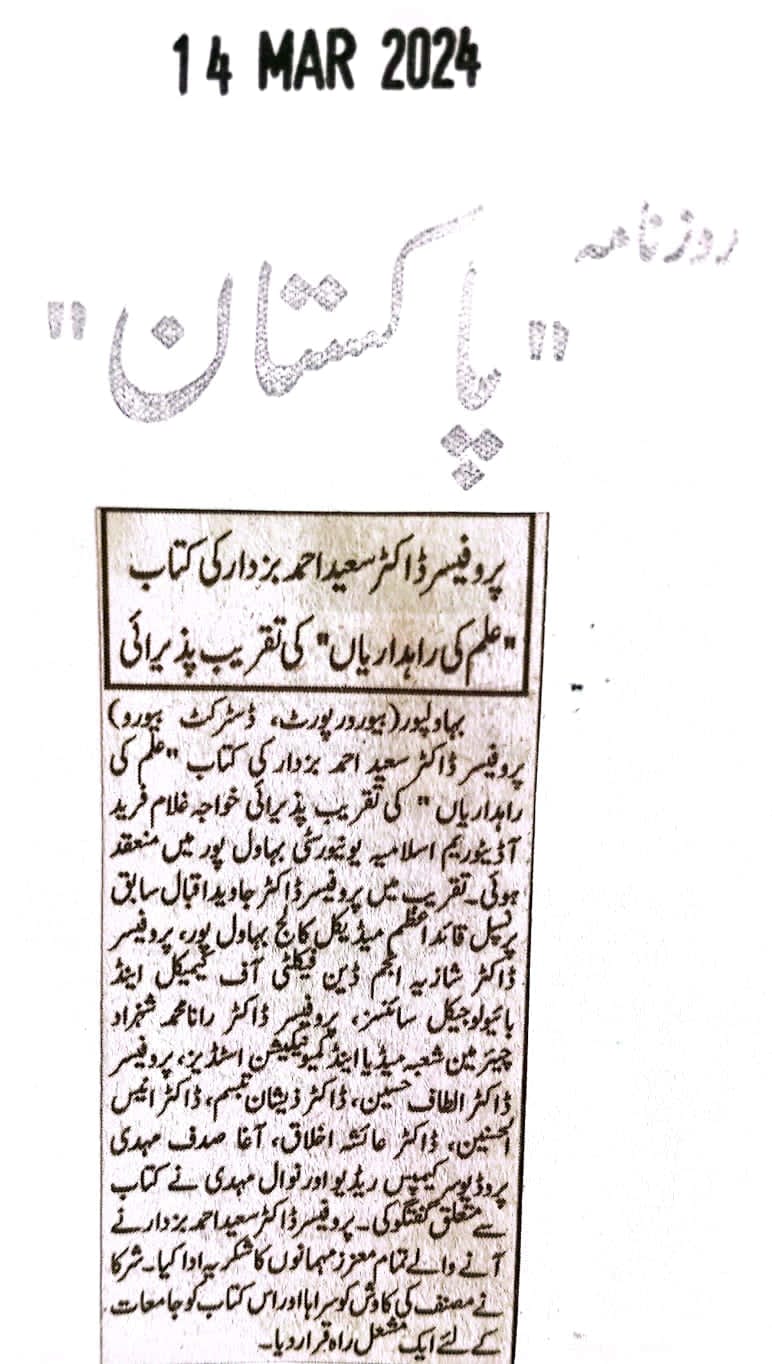 14 MAR 2024
روزنامہ
"پاکستان"
پروفیسر ڈاکٹر سعید احمد بزدار کی کتاب
"علم کی راہداریاں" کی تقریب پذیرائی
بہاولپور (بیورو رپورٹ، ڈسٹرکٹ بیورو)
پروفیسر ڈاکٹر سعید احمد بزدار کی کتاب "علم کی
راہداریاں" کی تقریب پذیرائی خواجہ غلام فرید
آڈیٹوریم اسلامیہ یونیورسٹی بہاول پور میں منعقد
ہوئی۔ تقریب میں پروفیسر ڈاکٹر جاوید اقبال سابق
پرنسپل قائد اعظم میڈیکل کالج بہاول پور، پروفیسر
ڈاکٹر شازیہ انجم ڈین فیکلٹی آف کیمیکل اینڈ
بائیولوجیکل سائنسز، پروفیسر ڈاکٹر رانا محمد شہزاد
چیئرمین شعبہ میڈیا اینڈ کمیونیکیشن اسٹڈیز، پروفیسر
ڈاکٹر الطاف حسین، ڈاکٹر ذیشان تبسم، ڈاکٹر انیس
الحسنین، ڈاکٹر عائشہ اخلاق، آغا صدف مہدی
پروڈیوسر کیمپس ریڈیو اور نوال مہدی نے کتاب
سے متعلق گفتگو کی۔ پروفیسر ڈاکٹر سعید احمد بزدار نے
آنے والے تمام معزز مہمانوں کا شکریہ ادا کیا۔ شرکا
نے مصنف کی کاوش کو سراہا اور اس کتاب کو جامعات
کے لئے ایک مشعل راہ قرار دیا۔